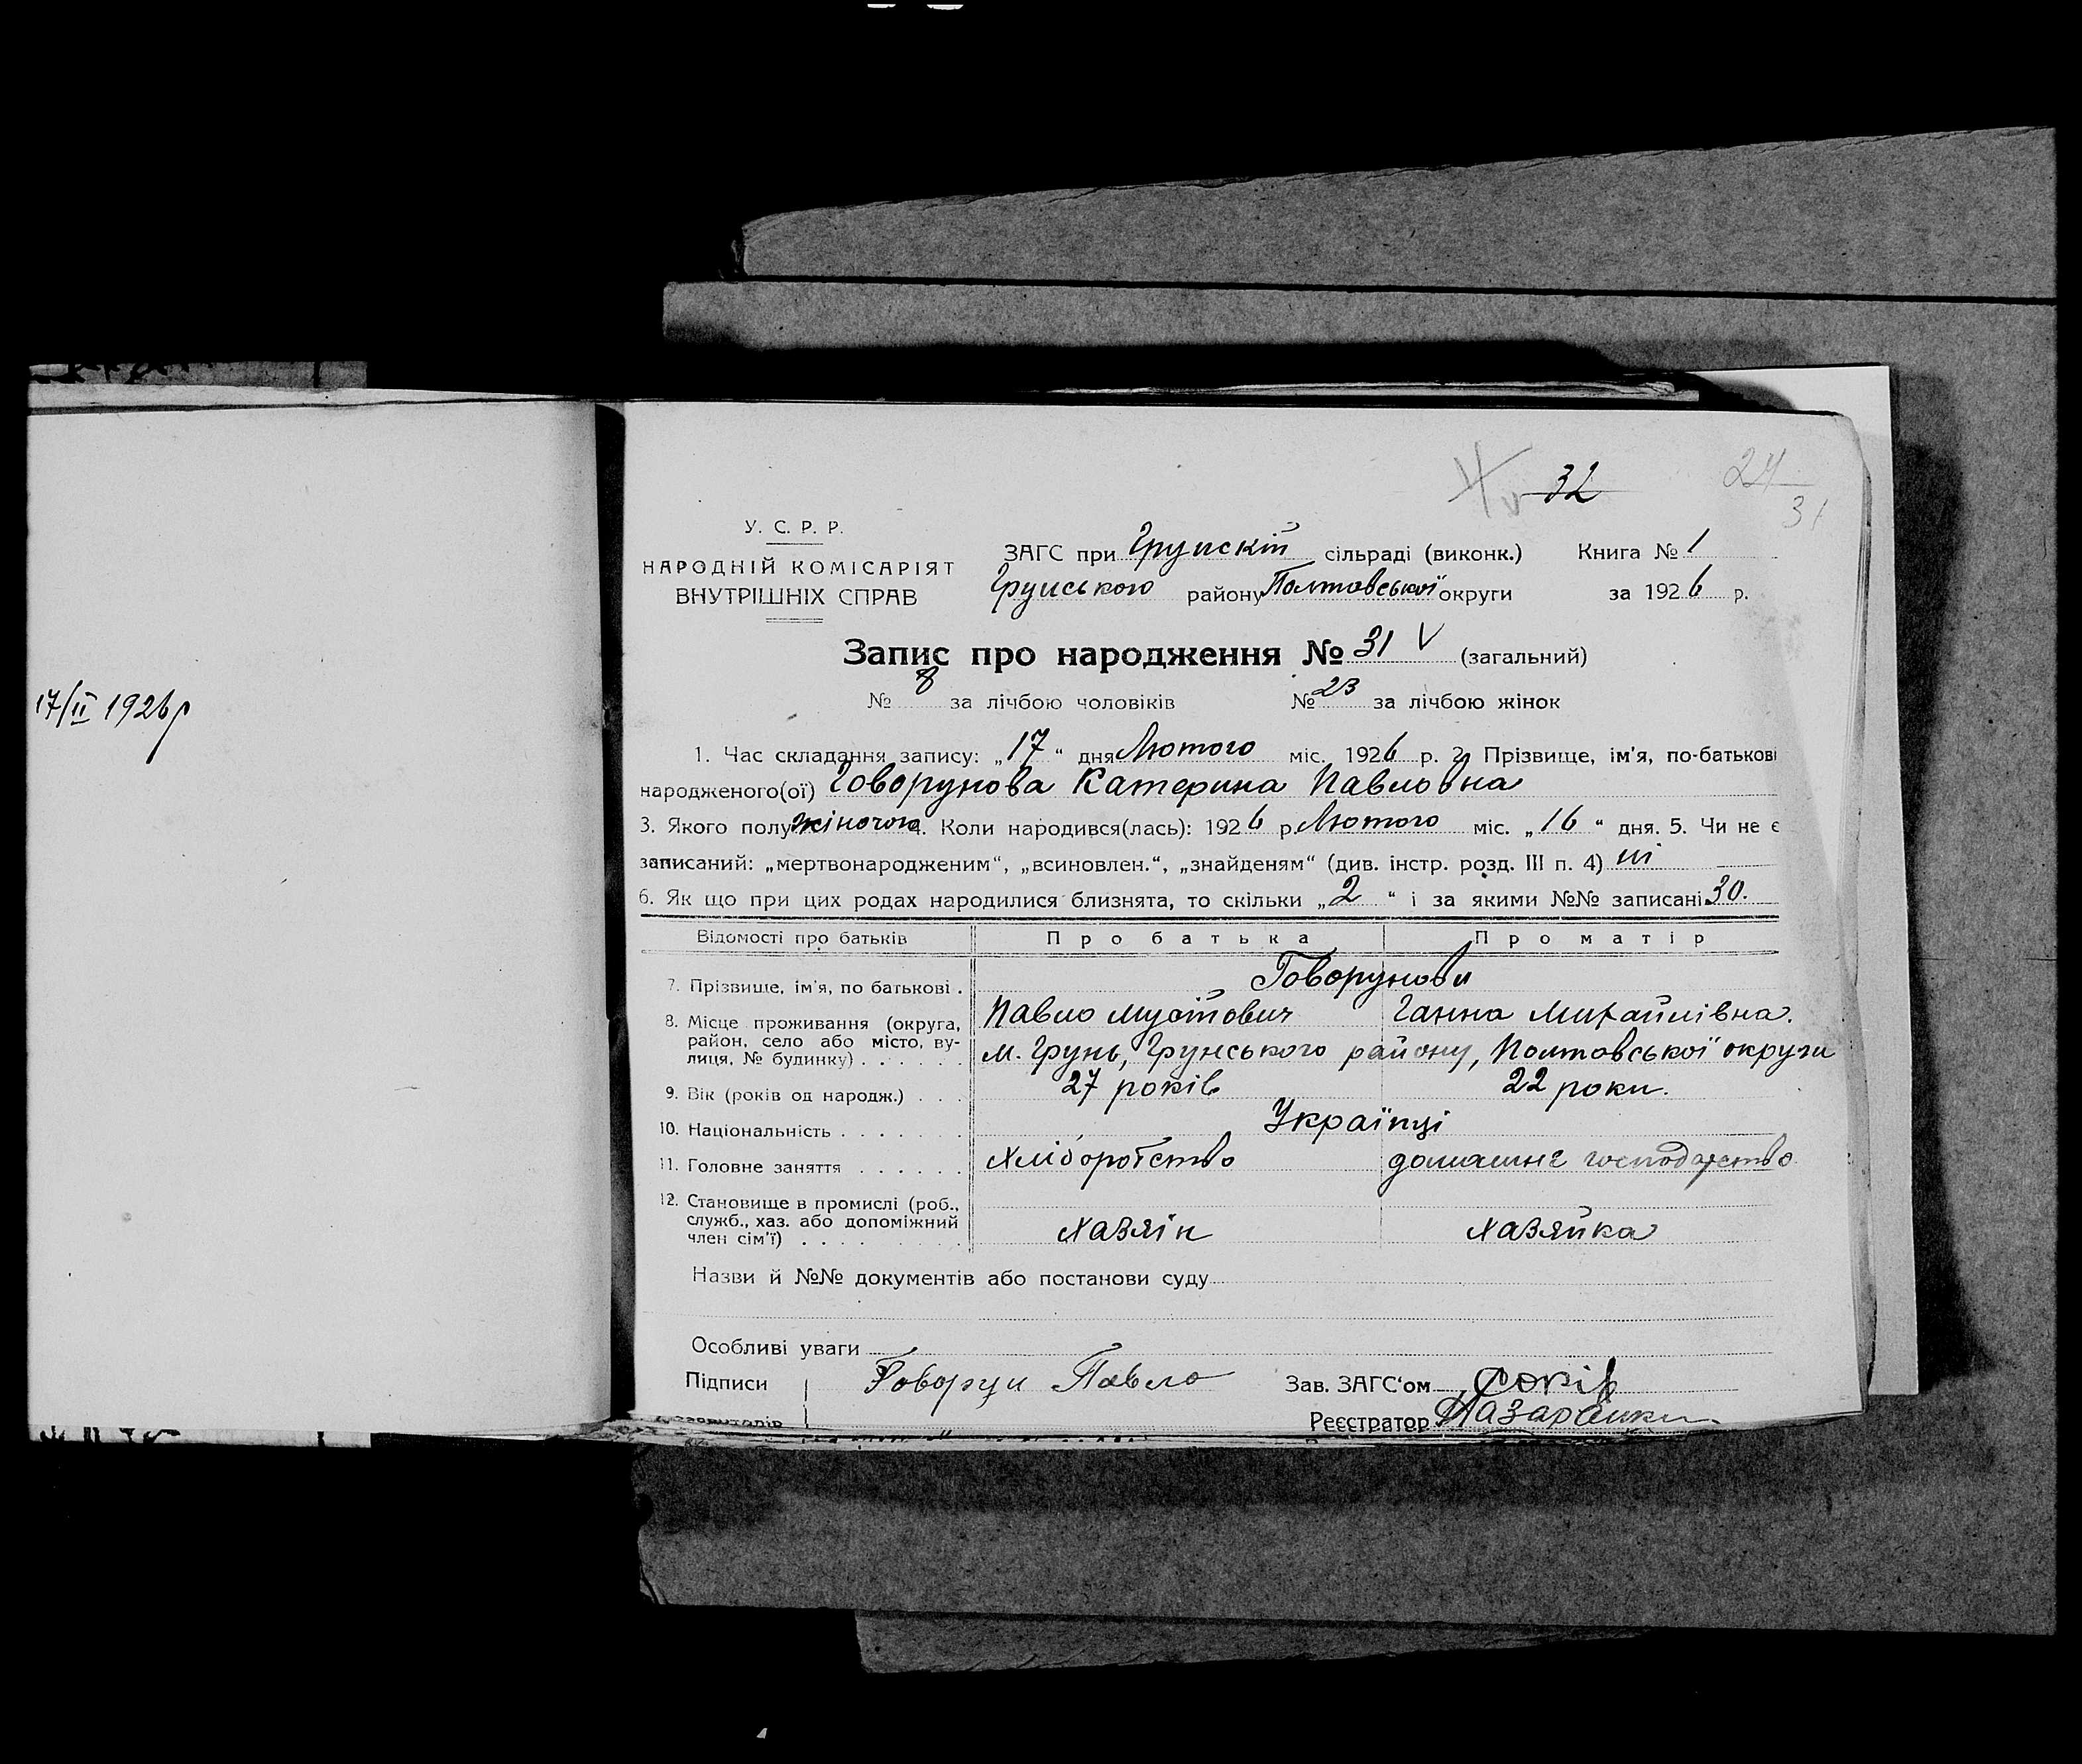 32
27
31
У. С. Р. Р.
НАРОДНІЙ КОМІСАРІЯТ
ВНУТРІШНІХ СПРАВ
ЗАГС при Грунскій сільраді (виконк.) Книга № 1
Грунського району Полтавської округи за 1926 р.
Запис про народження № 31 V (загальний)
№ 8 за лічбою чоловіків № 23 за лічбою жінок
17/II 1926 р
1. Час складання запису: „17“ дня Лютого міс. 1926 р. 2. Прізвище, ім'я, по-батькові
народженого(ої) Говорунова Катерина Павловна
3. Якого полу жіночого 4. Коли народився(лась): 1926 р. Лютого міс. „16“ дня. 5. Чи не є
записаний: „мертвонародженим“, „всиновлен.“, „знайденям“ (див. інстр. розд. III п. 4) ні
6. Як що при цих родах народилися близнята, то скільки „2“ і за якими №№ записані 30.
Відомості про батьків Про батька Про матір
7. Прізвище, ім'я, по батькові . Говорунови
Павло Ганна Михайлівна.
8. Місце проживання (округа,
район, село або місто, ву-
лиця, № будинку) . . . . . . м. Грунь, Грунського району, Полтавської округи
9. Вік (років од народж.) . . . 27 років 22 роки.
10. Національність . . . . . . . Українці
11. Головне заняття . . . . . . Хліборобство домашнє господарство
12. Становище в промислі (роб.,
служб., хаз. або допоміжний
член сім'ї) . . . . . . . . . хазяін хазяйка
Назви й №№ документів або постанови суду
Особливі уваги
Підписи Говорун Павло Зав. ЗАГС'ом
Реєстратор